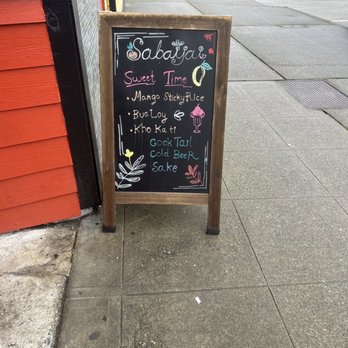 Sabaijai
Sweet Time
• Mango Sticky Rice
• Bua Loy
• Kho Ka ti
Cock Tail
Cold Beer
Sake